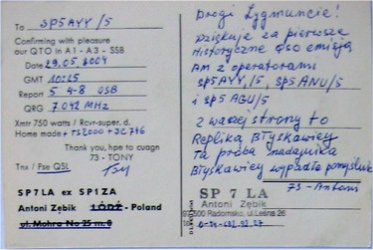 To SP5AYY/5
Confirming with pleasure
our QTO in A1 - A3 - SSB
Date 29.05.2004
GMT 10:25
Report 5 4-8 SSB
QRG 7.042 MHz
Xmtr 750 watts / Rcvr-super. d.
Home made + TS2000 + IC746
Thank you, hpe to cuagn
73 - TONY
Tnx / Fse QSL Tony
SP7LA ex SP1ZA
Antoni Zębik ŁÓDŹ - Poland
ul. Mohra No 25 m. 8
Drogi Zygmuncie!
Dziękuję za pierwsze
Historyczne QSO emisją
AM z operatorami
SP5AYY/5, SP5ANU/5
i SP5AGU/5
Z waszej strony to
Replika Błyskawicy
Ta próba nadajnika
Błyskawicy wypadła pomyślnie
73 - Antoni
SP 7 LA
Antoni Zębik
97-500 Radomsko, ul. Leśna 26